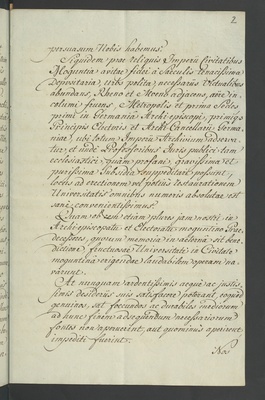 2
persuasum Nobis habemus.
Siquidem prae reliquis Imperii Civitatibus
Moguntia avitae fidei à saeculis tenacissima
Depositaria, urbs polita, necessariis Victualibus
abundans, Rheno et Moeno adjacens, aëre in-
columi fruens, Metropolis et prima Sedes
primi in Germania Archi-episcopi, primi
Principis Electoris et Archi-Cancellarii Germa-
niae, publicum Imperii Archivium adserva-
tur, et unde Professoribus Juris publici tam
ecclesiastici quàm profani, gravissima et
purissima subsidia suppeditari possunt,
locus ad erectionem vel potius restaurationem
Universitatis omnibus numeris absolutae est
sanè convenientissimus.
Quam ob rem etiam plures jam nostri in
Archi-episcopatu et Electoratu moguntino Prae-
decessores, quorum memoria in aeternum sit bene-
dictione, fructuosae Universitati in Civitate
moguntina erigendae laudabilem operam na-
varunt.
At nunquam ardentissimis aequè ac justis-
simis desideriis suis satisfacere poterant, eo quod
genuinos, sat foecundos ac durabiles mediorum
ad hunc finem adsequendum necessariorum
fontes non aperuerint, aut quominus aperirent
impediti fuerint.
Nos